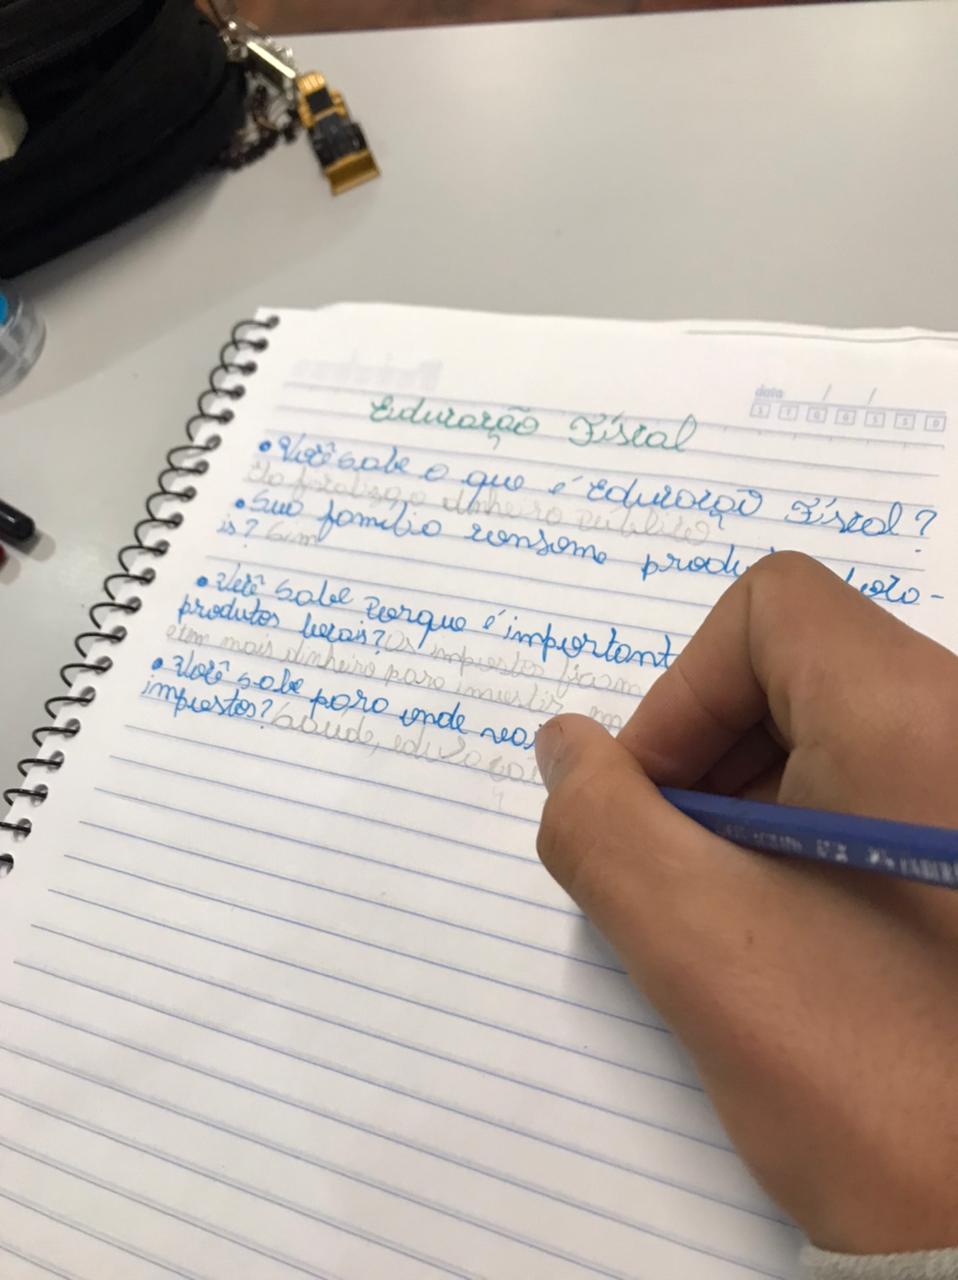 data / /
S T Q Q S S D
Educação Fiscal
• Você sabe o que é Educação Fiscal?
dinheiro público
• Sua família consome
is? Sim
• Você sabe porque é important
produtos locais? Os impostos ficam
e tem mais dinheiro para investir
• Você sabe para onde
impostos? Saúde, educaçã